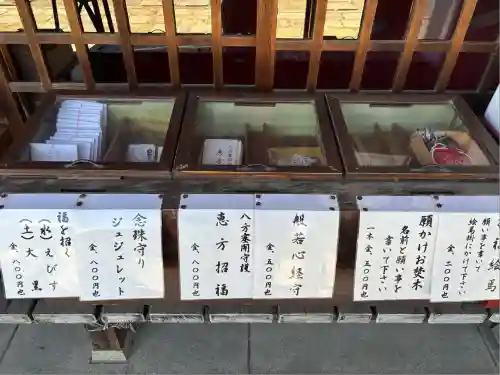 福を招く
（水）えびす
（土）大黒
金、八〇〇円也
念珠守り
ジュジュレット
金、八〇〇円也
八方塞開守護
恵方招福
金、五〇〇円也
般若心経守
金、五〇〇円也
願かけお焚木
名前と願い事を
書いて下さい
一本金、二〇〇円也
絵馬
願い事を書いて
絵馬掛けに掛
けて下さい
金、五〇〇円也